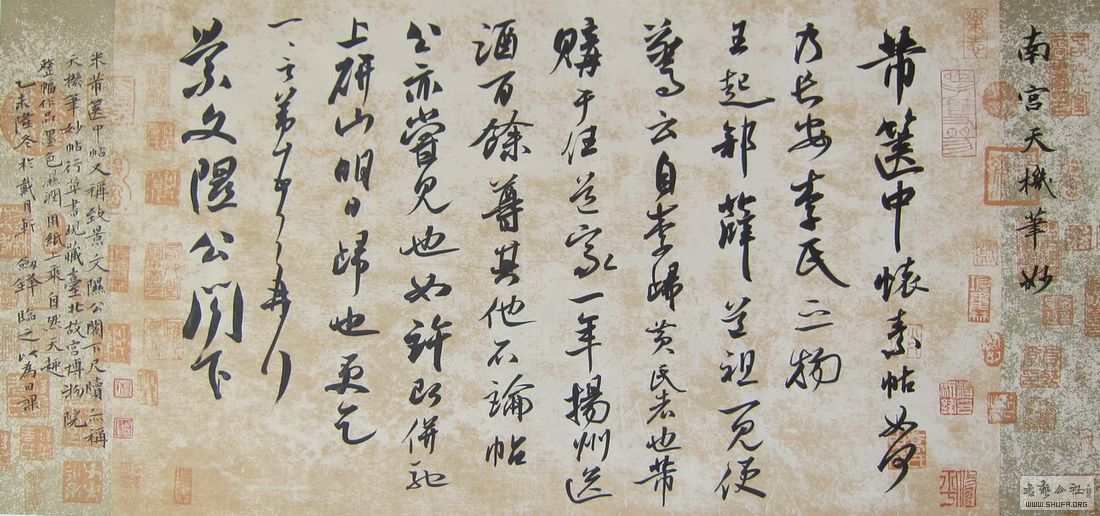 南宮天機筆妙
芾篋中懷素帖如何
乃長安李氏之物
王起部薛道祖一見便
驚云自李歸黃氏者也芾
購于任道家一年揚州送
酒百餘尊其他不論帖
公亦嘗見也如許即併馳
上研山明日歸也更乞
一言芾頓首再拜
景文隰公閣下
米芾篋中帖又稱致景文隰公閣下尺牘亦稱
天機筆妙帖行草書現藏臺北故宮博物院
整幅作品墨色濕潤用紙上乘自然天趣
乙未隆冬於戴月軒劍鋒臨之以為日課
書藝公社
WWW.SHUFA.ORG